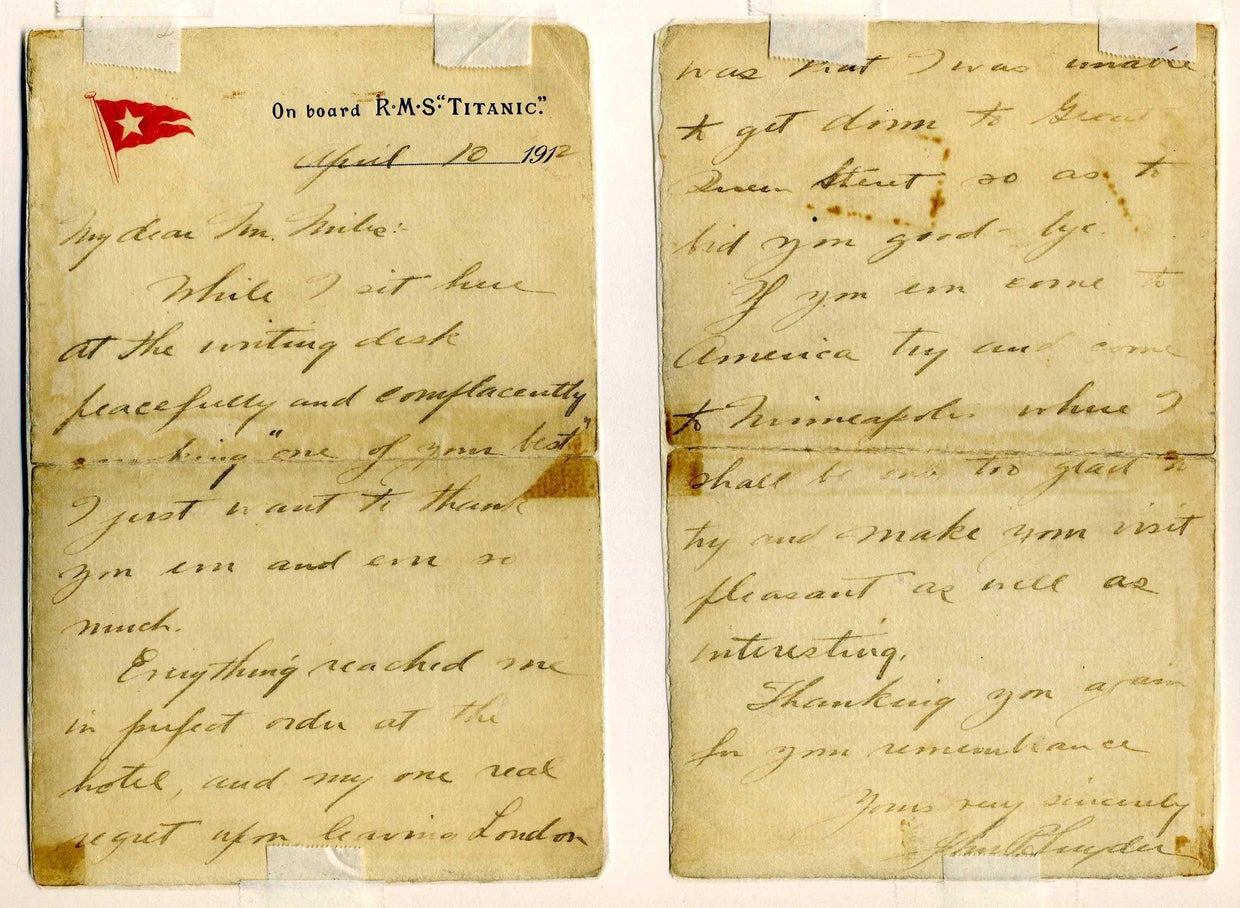 On board R·M·S·"TITANIC".
April 10 1912
My dear Mr. Miles:-
While I sit here
at the writing desk
peacefully and complacently
smoking "one of your best"
I just want to thank
you ever and ever so
much.
Everything reached me
in perfect order at the
hotel, and my one real
regret upon leaving London
was that I was unable
to get down to Great
Queen Street so as to
bid you good-bye.
If you ever come to
America try and come
to Minneapolis where I
shall be only too glad to
try and make your visit
pleasant as well as
interesting.
Thanking you again
for your remembrance
Yours very sincerely
John P. Snyder